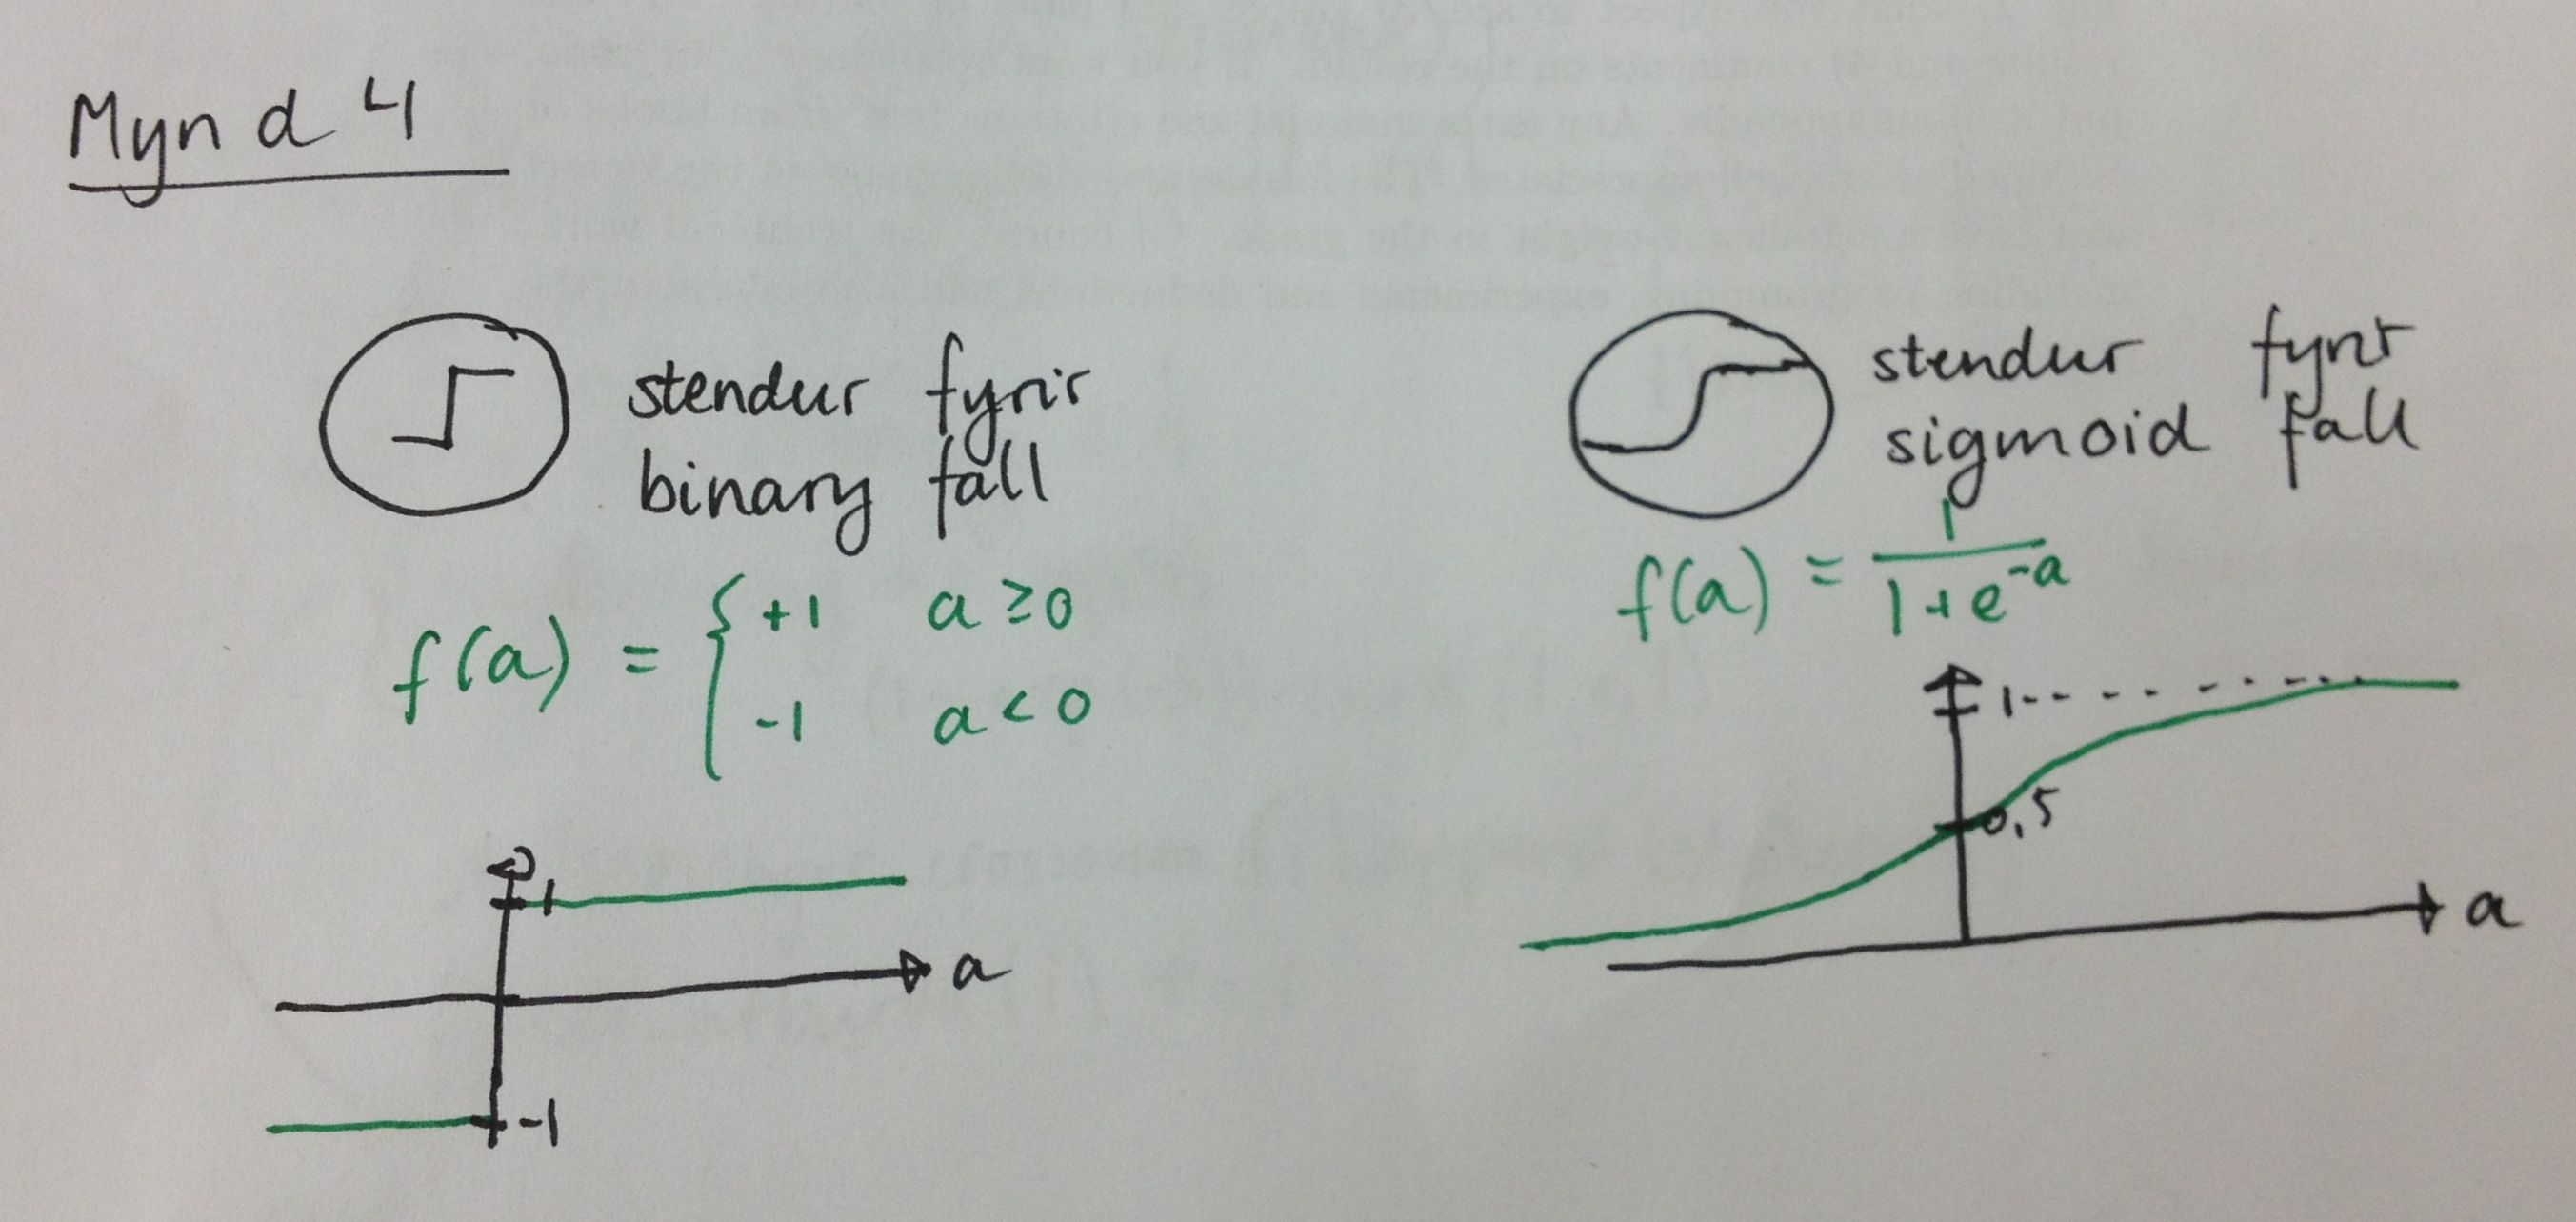 Mynd 4
stendur fyrir
binary fall
f(a) = { +1 a ≥ 0
-1 a < 0
1
a
-1
stendur fyrir
sigmoid fall
f(a) = 1 / 1 + e^-a
1
0,5
a